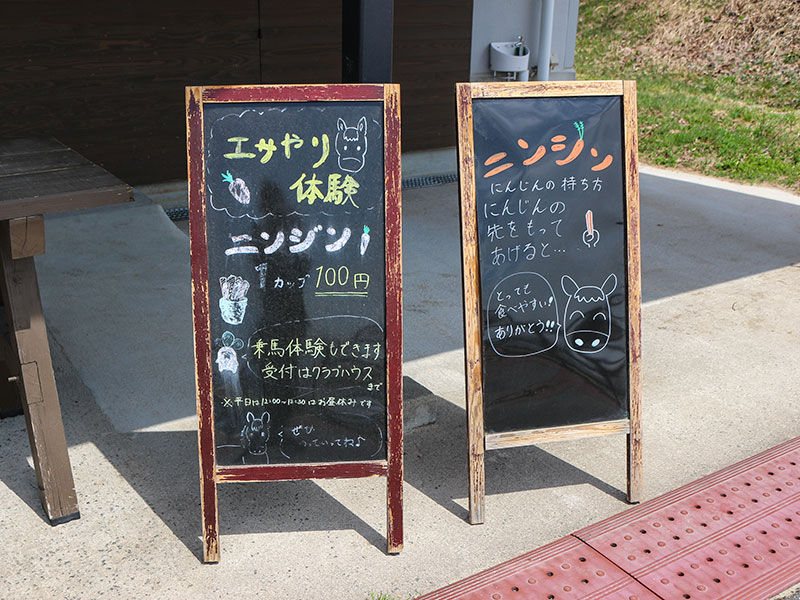 エサやり
体験
ニンジン!
1カップ 100円
乗馬体験もできます
受付はクラブハウス
まで
※平日は12:00~13:30はお昼休みです
ぜひ
ってね♪
ニンジン
にんじんの持ち方
にんじんの
先をもって
あげると…
とっても
食べやすい!
ありがとう!!